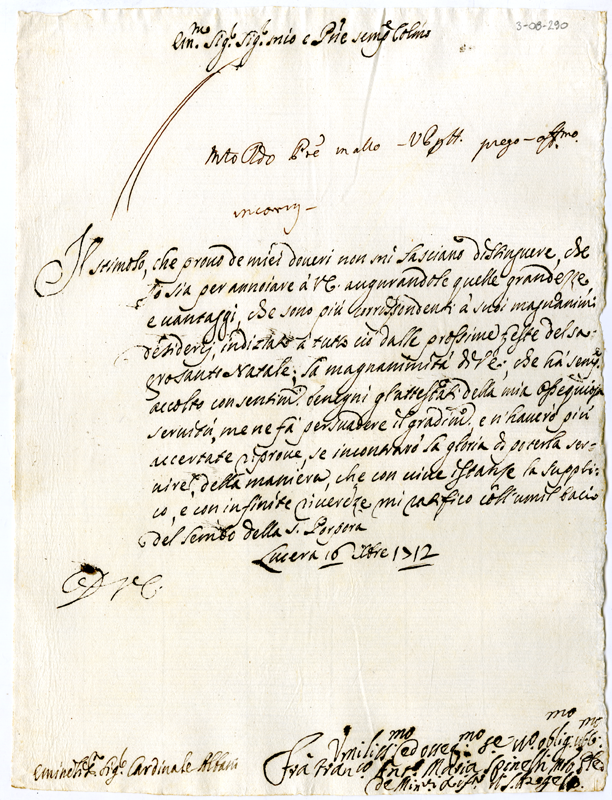 3-08-290
Em.mo Sig.r Sig.r mio e Pne semp Colmo
prego
Il stimolo, che provo de miei doveri non mi lasciano distinguere, che
Io sia per annoiare à V.E. augurandole quelle grandezze
e vantaggi, che sono più corrispondenti à suoi magnanimi
desiderij, indizzati à tutto ciò dalle prossime feste del sa-
grosanto Natale; la magnanimità di V.E. che hà semp.
accolto con sentim.i benegni gl'attestati della mia osseguiosa
servitù, me ne fà persuadere il gradim.o e n'haverò più
accertate riprove, se incontrarò la gloria di poterla ser-
uire, della maniera, che con vive istanze la suppli-
co, e con infinite riverenze mi ratifico coll'umil bacio
del lembo della S. Porpora
Lucera 16 Xbre 1712
D V.E.
Eminentis.o Sig.r Cardinale Albani
Umiliss.mo ed osseq.mo se.re oblig.mo
Fra Franc.o Ant.o Maria Spinelli